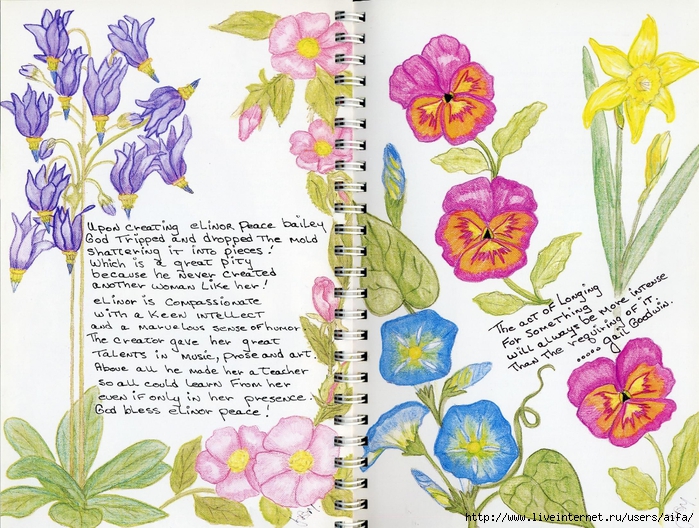 Upon creating eLinor Peace bailey
God Tripped and dropped The mold
shattering it into pieces!
Which is a great pity
because he never created
another woman Like her!
eLinor is compassionate
with a keen intellect
and a marvelous sense of humor.
The creator gave her great
Talents in Music, prose and art.
Above all he made her a teacher
so all could Learn From her
even if only in her presence.
God bless eLinor peace!
The act of Longing
For something
will always be more intense
Than the requiring of it.
..... gail Goodwin.
http://www.liveinternet.ru/users/aifa/